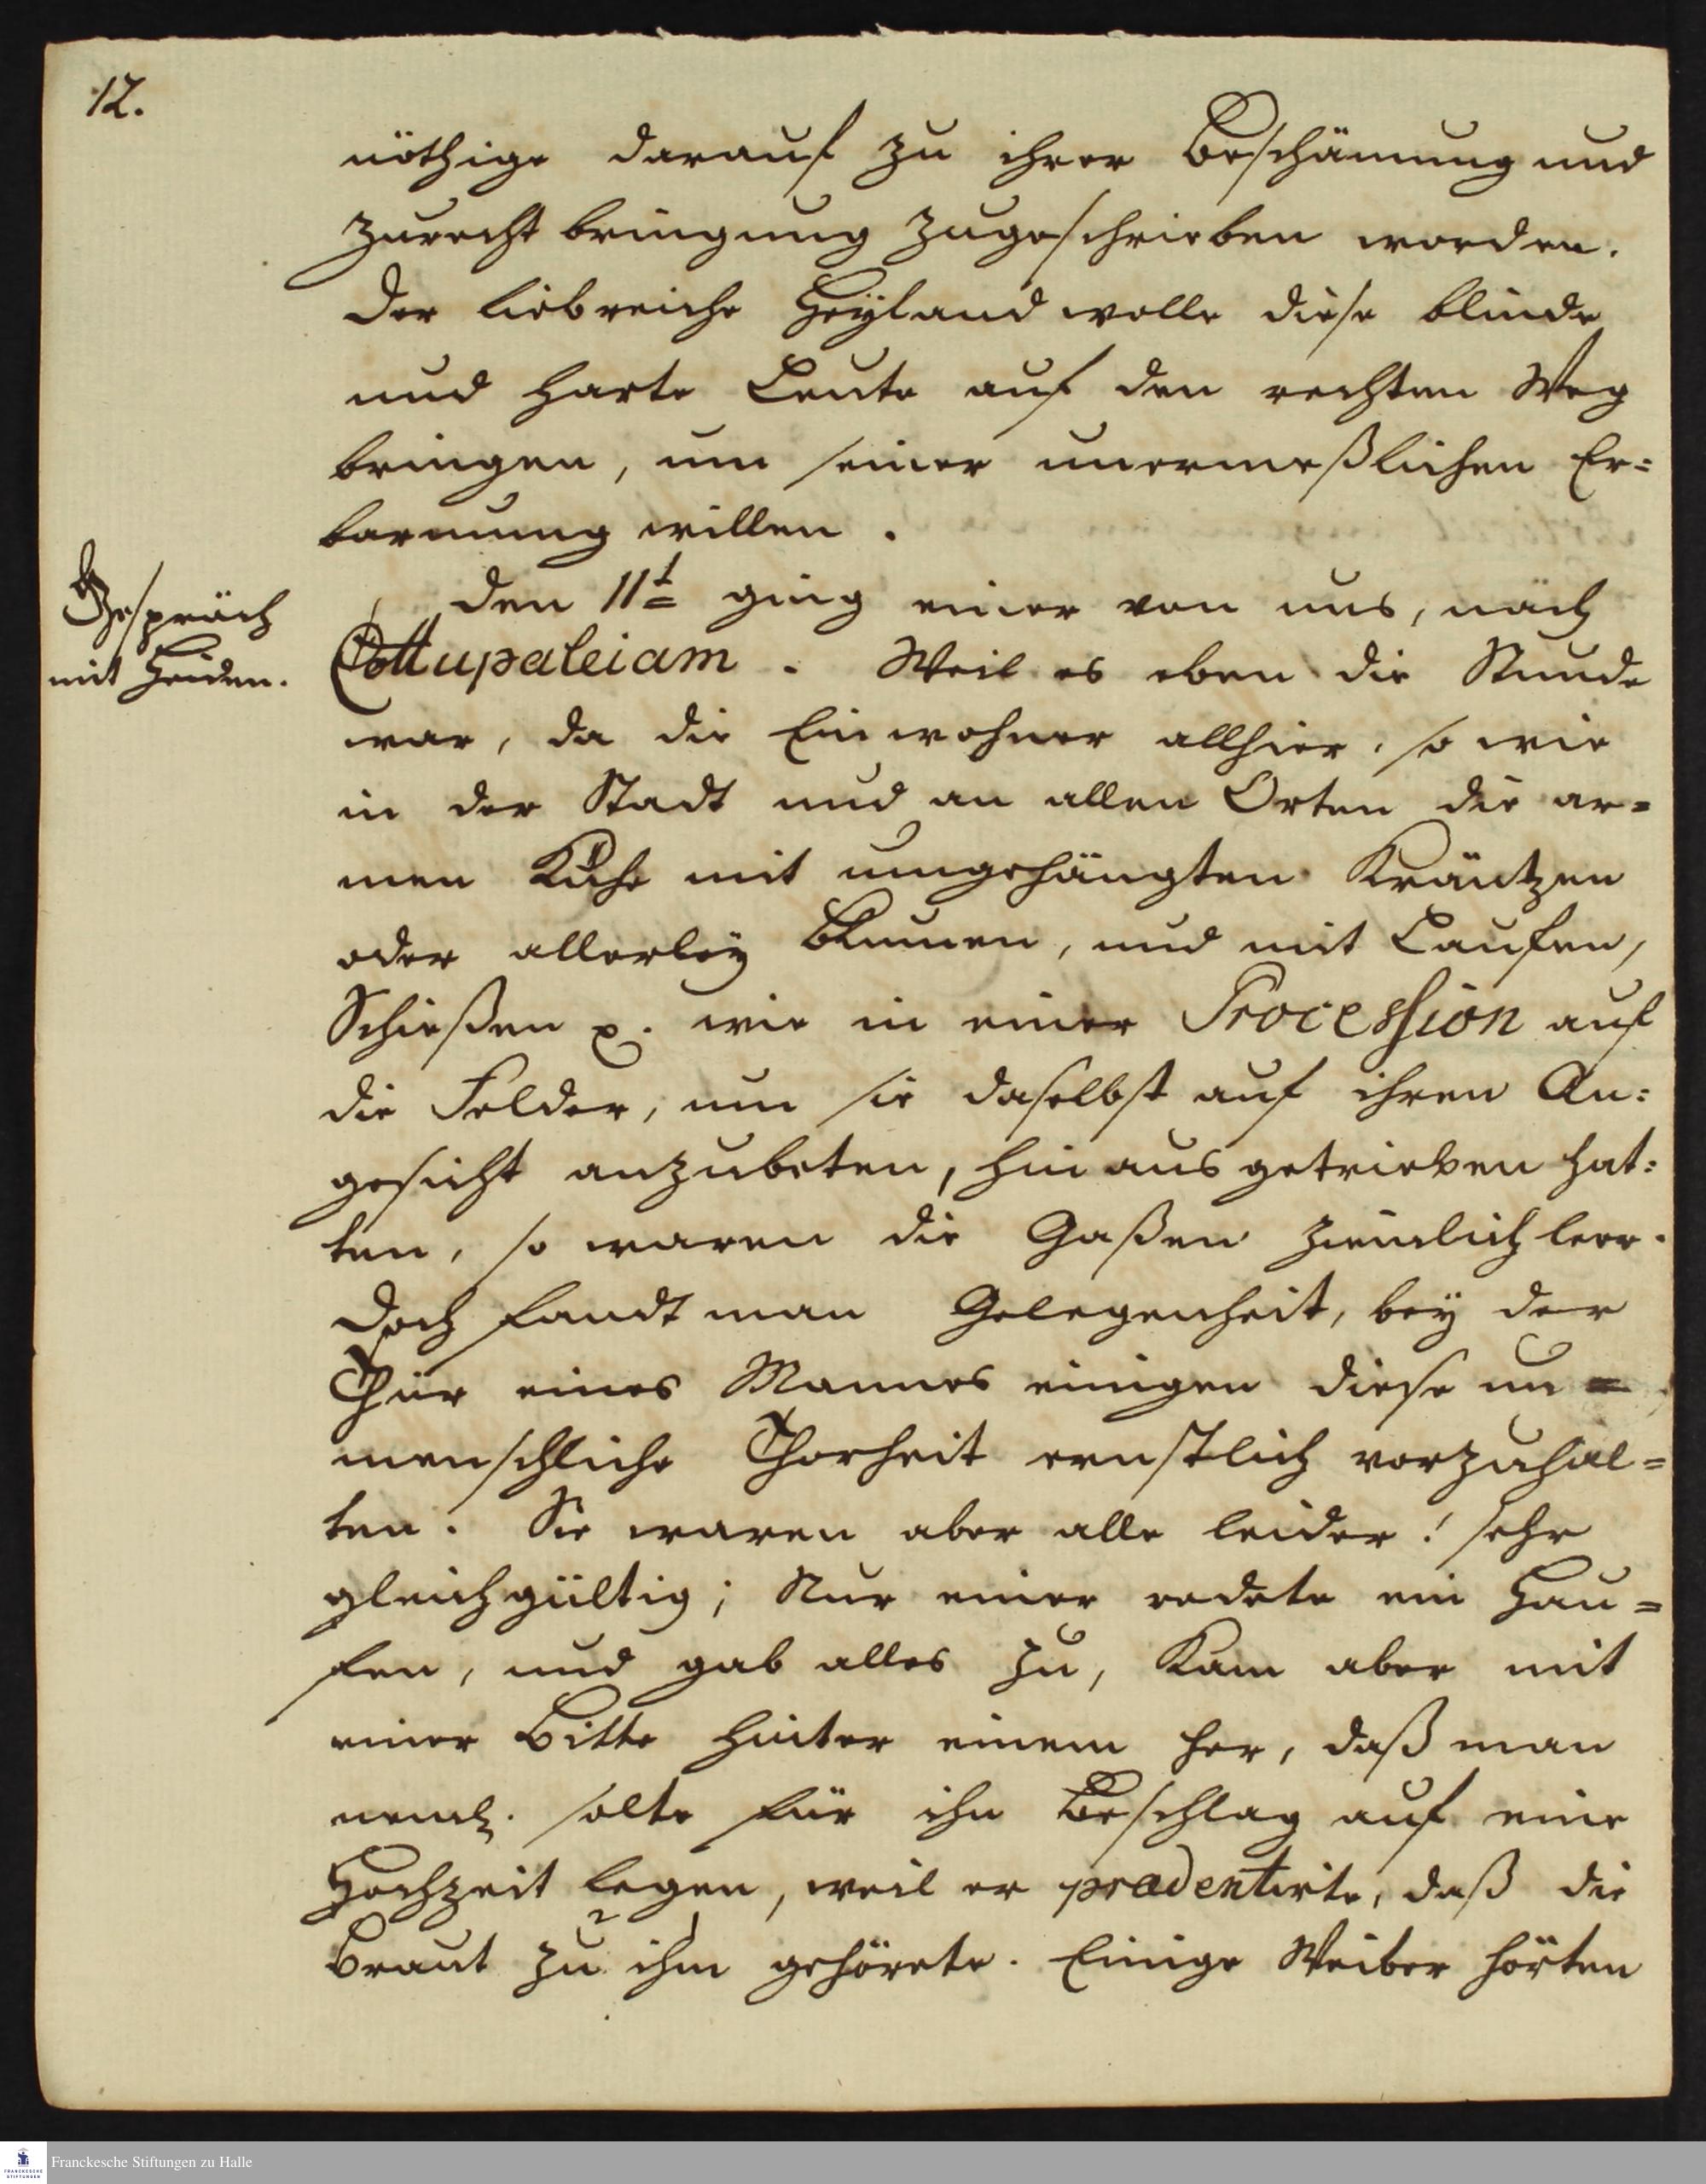 12.
nöthige darauf zu ihrer Beschämung und
Zurecht bringung zugeschrieben worden.
Der liebreiche Heyland wolle diese blinde
und harte Leute auf den rechten Weg
bringen, um seiner unermeßlichen Er=
barmung willen.
Gespräch
mit Heiden.
Den 11t ging einer von uns, nach
Pottupaleiam. Weil es eben die Stunde
war, da die Einwohner allhier, so wie
in der Stadt und an allen Orten die ar=
men Kühe mit umgehängten Kräntzen
oder allerley Blumen, und mit Laufen,
Schießen p. wie in einer Procession auf
die Felder, um sie daselbst auf ihren An=
gesicht anzubeten, hinaus getrieben hat=
ten, so waren die Gaßen ziemlich leer.
Doch fandt man Gelegenheit, bey der
Thür eines Mannes einigen diese un=
menschliche Thorheit ernstlich vorzuhal=
ten. Sie waren aber alle leider! sehr
gleichgültig; Nur einer redete ein Hau=
fen, und gab alles zu, kam aber mit
einer Bitte hinter einem her, daß man
neml. solte für ihn Beschlag auf eine
Hochzeit legen, weil er prædentirte, daß die
Braut zu ihm gehörete. Einige Weiber hörten
Franckesche Stiftungen zu Halle